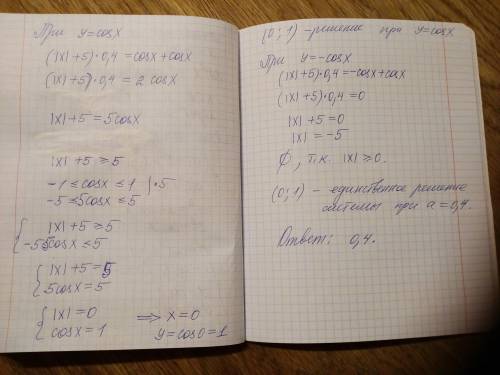 При y=cosx
(|x|+5)·0,4 =cosx+cosx
(|x|+5)·0,4 = 2 cosx
|x|+5=5cosx
|x|+5 ≥5
-1 ≤ cosx ≤ 1 |·5
-5 ≤ 5cosx ≤ 5
{ |x|+5 ≥5
-5≤5cosx ≤ 5
{ |x|+5 =5
5cosx = 5
{ |x| =0
cosx = 1 ⟹ x=0
y=cos0=1
(0; 1) -решение при y=cosx
При y=-cosx
(|x|+5)·0,4=-cosx+cosx
(|x|+5)·0,4 =0
|x|+5=0
|x| = -5
∅, т.к. |x| ≥0.
(0; 1) - единственное решение
системы при a=0,4.
Ответ: 0,4.